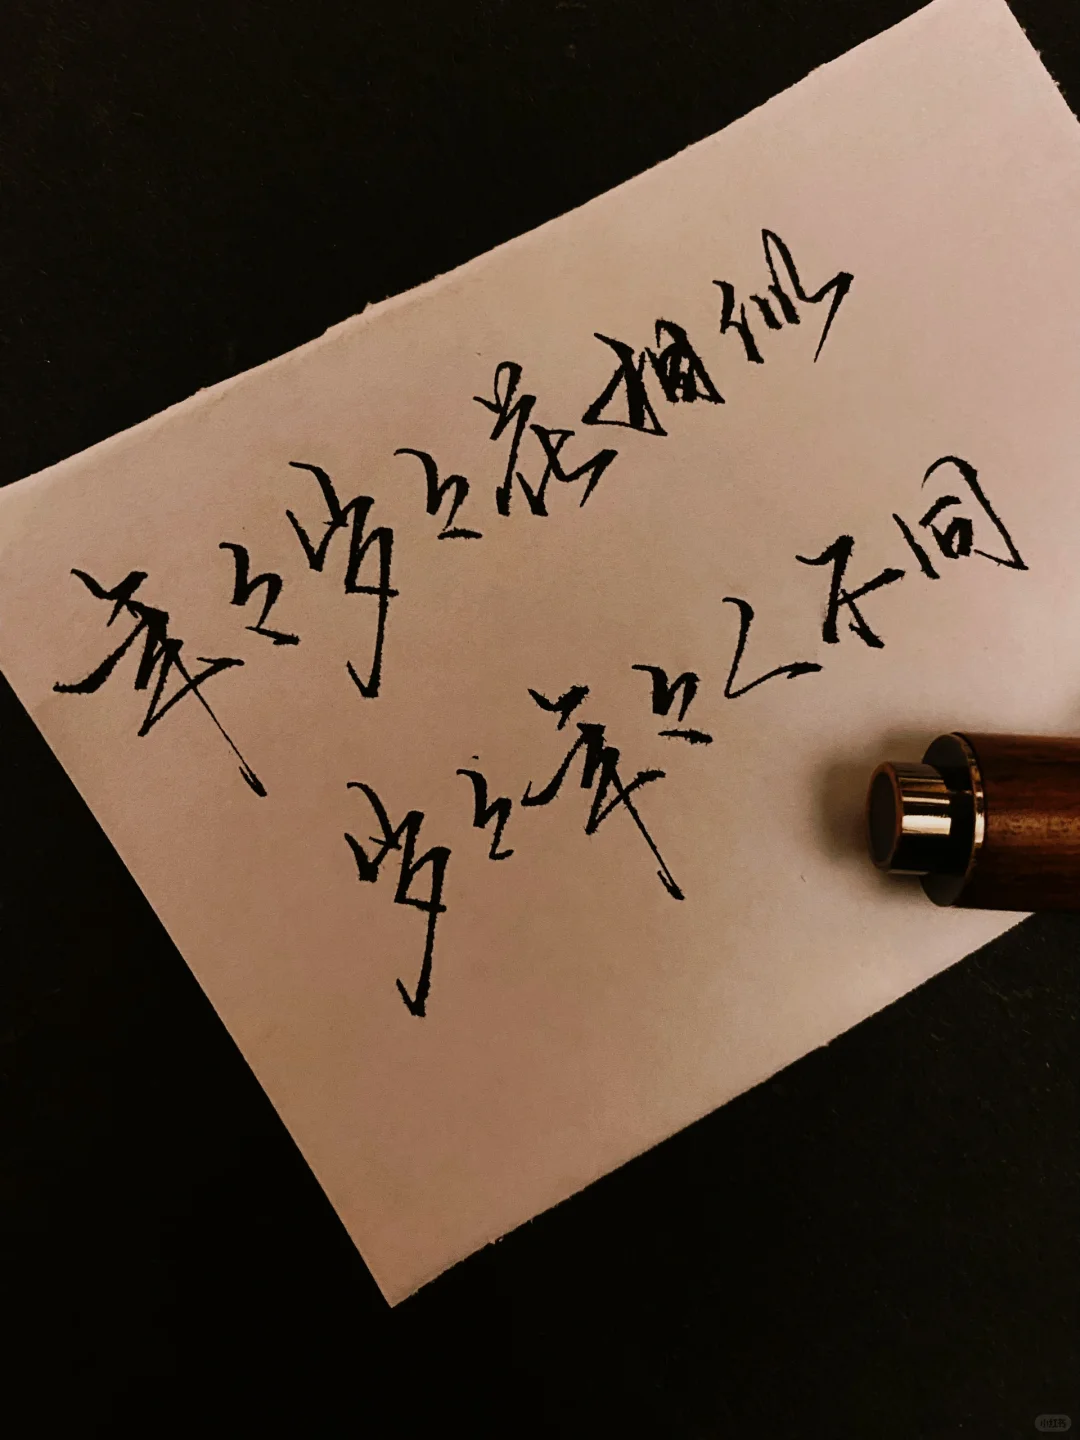 年年岁岁花相似
岁岁年年人不同
小红书